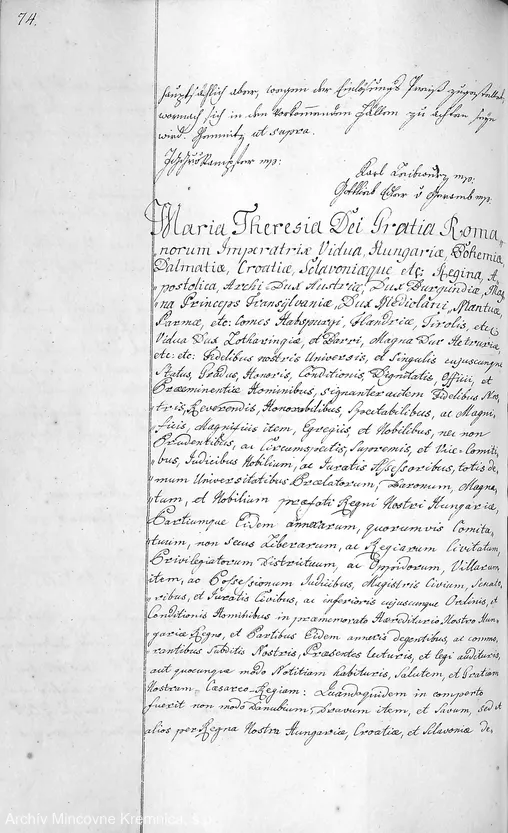 74.
hauptsächlich aber, wegen der Einlösungs Preiß zugestellet,
wornach sich in den vorkommenden Fällen zu achten seyn
wird. Chemnitz ut supra.
mp:
Karl mp:
Gottlieb Edler v mp:
Maria Theresia Dei Gratia Roma„
norum Imperatrix Vidua, Hungariæ, Bohemiæ
Dalmatiæ, Croatiæ, Sclavoniæque etc: Regina, A„
„postolica, Archi Dux Austriæ, Dux Burgundiæ, Mag„
„na Princeps Transylvaniæ, Dux Mediolani, Mantuæ,
Parmæ, etc: Comes Habspurgi, Flandriæ, Tirolis, etc:
Vidua Dux Lotharingiæ, et Barri, Magna Dux Hetruriæ,
etc: etc: Fidelibus nostris Universis, et Singulis cujuscunque
Status, Gradus, Honoris, Conditionis, Dignitatis, Officii, et
Præeminentiæ Hominibus, signanter autem Fidelibus Nos„
„tris, Reverendis, Honorabilibus, Spectabilibus, ac Magni„
„ficis, Magnificis item, Egregiis, et Nobilibus, nec non
Prudentibus, ac Circumspectis, Supremis, et Vice-Comiti„
„bus, Judicibus Nobilium, ac Juratis Assessoribus, totis de„
„mum Universitatibus Prælatorum, Baronum, Magna„
„tum, et Nobilium præfati Regni Nostri Hungariæ,
Partiumque Eidem annexarum, quorumvis Comita„
„tuum, non secus Liberarum, ac Regiarum Civitatum,
Privilegiatorum Districtuum, ac Oppidorum, Villarum
item, ac Possessionum Judicibus, Magistris Civium, Senato„
„ribus, et Juratis Civibus, ac inferioris cujuscunque Ordinis, et
Conditionis Hominibus in præmemorato Hæreditario Nostro Hun„
gariæ Regno, et Partibus Eidem annexis degentibus, ac commo„
„rantibus Subditis Nostris, Præsentes lecturis, et legi audituris,
aut quocunque modo Notitiam habituris, Salutem, et Gratiam
Nostram, Cæsareo-Regiam: Quandoquidem in comperto
fuerit non modo Danubium, Dravum item, et Savum, sed et
alios per Regna Nostra Hungariæ, Croatiæ, et Sclavoniæ de„
Archiv Mincovne Kremnica, š.p.